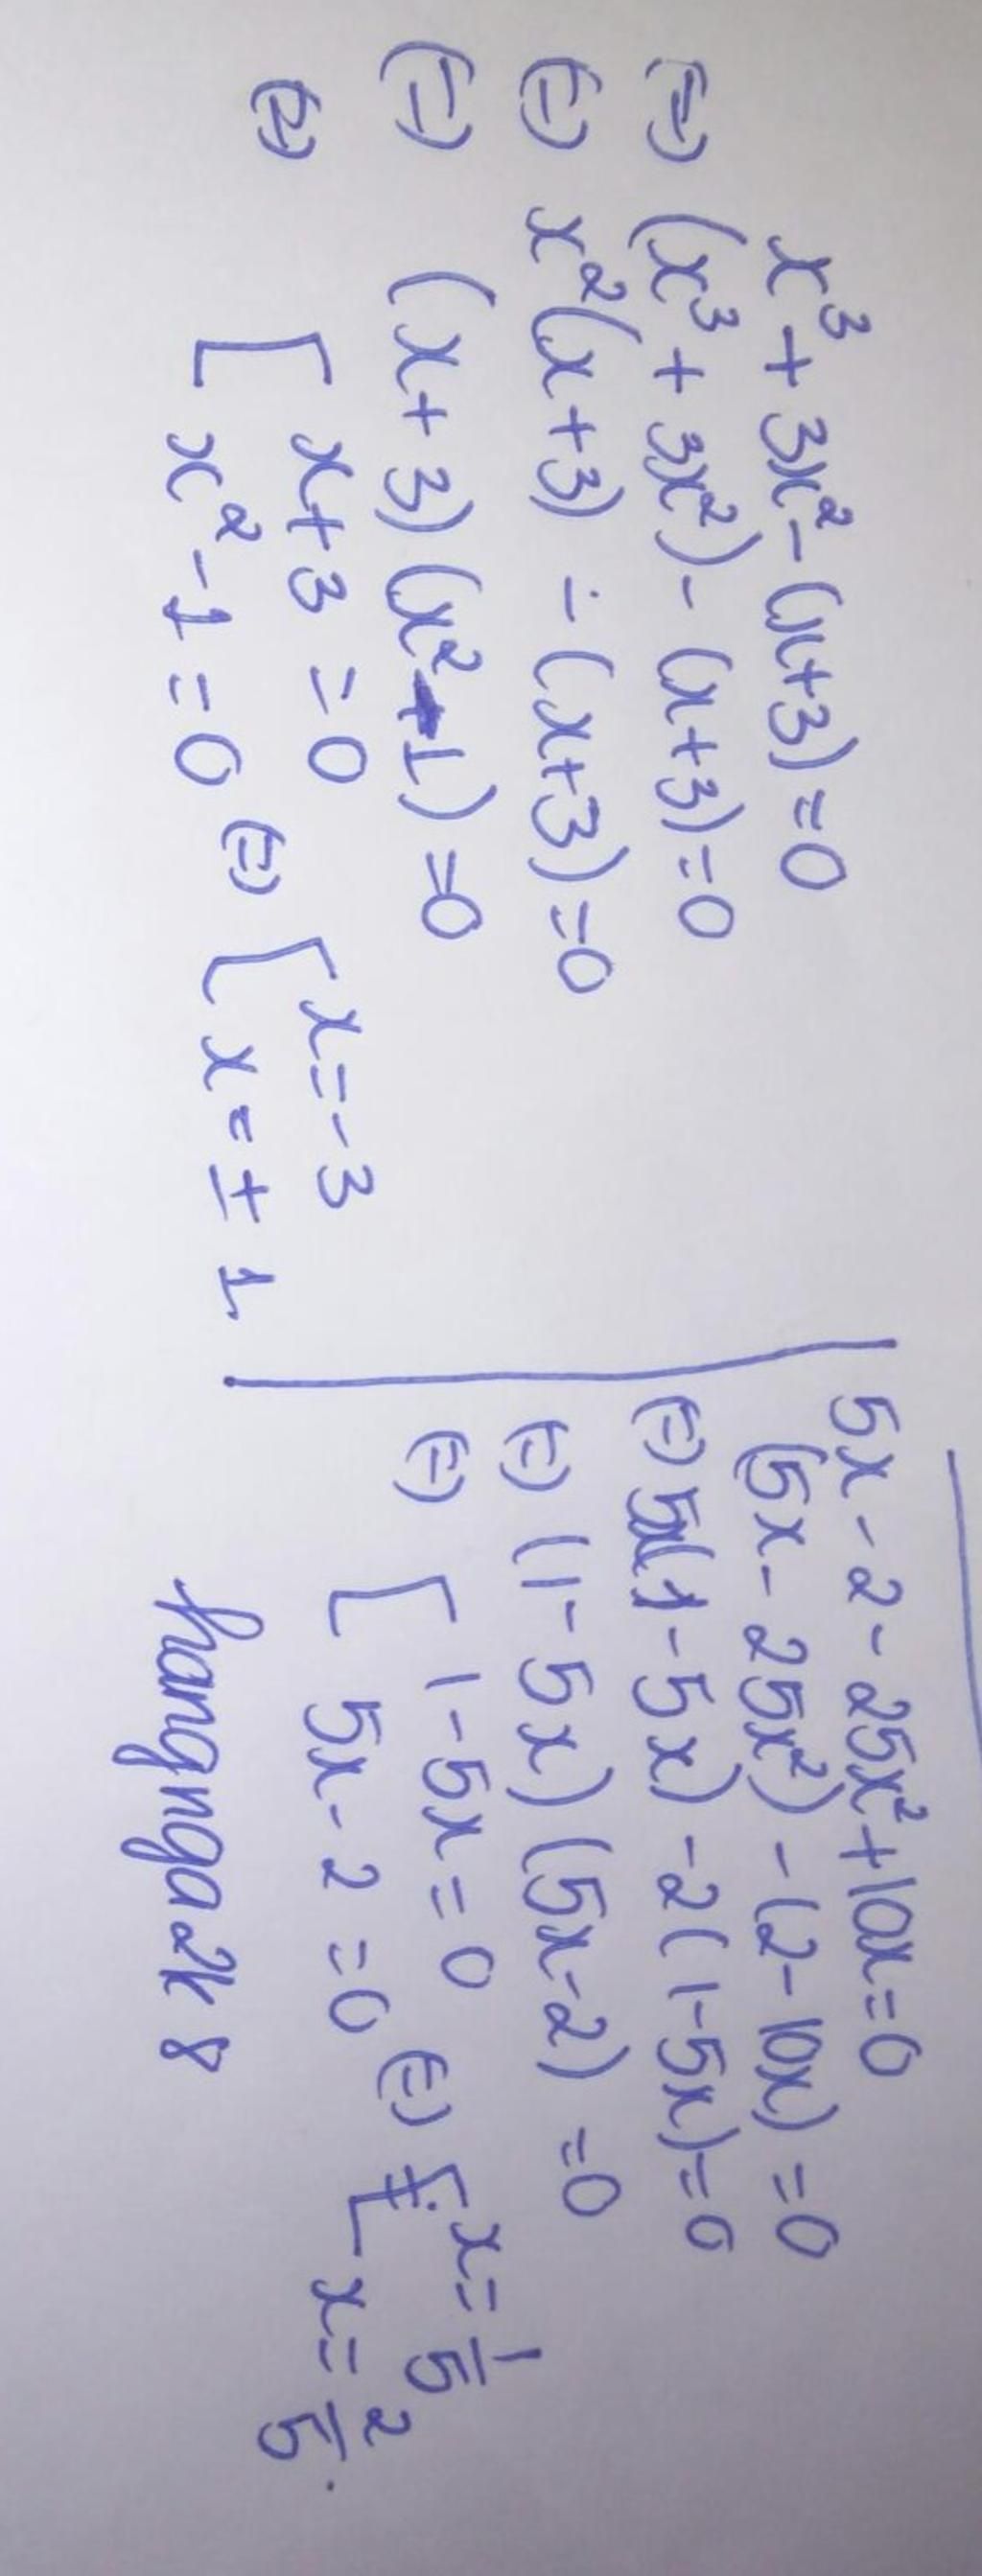 x³ + 3x² - (x+3) = 0
(=) (x³ + 3x²) - (x+3) = 0
(=) x²(x+3) - (x+3) = 0
(=) (x+3)(x²-1) = 0
(=) [ x+3 = 0
[ x²-1 = 0 (=) [ x = -3
[ x = ± 1
5x - 2 - 25x² + 10x = 0
(5x - 25x²) - (2 - 10x) = 0
(=) 5x(1 - 5x) - 2(1 - 5x) = 0
(=) (1 - 5x)(5x - 2) = 0
(=) [ 1 - 5x = 0
[ 5x - 2 = 0 (=) [ x = 1/5
[ x = 2/5.
hangnga2k8